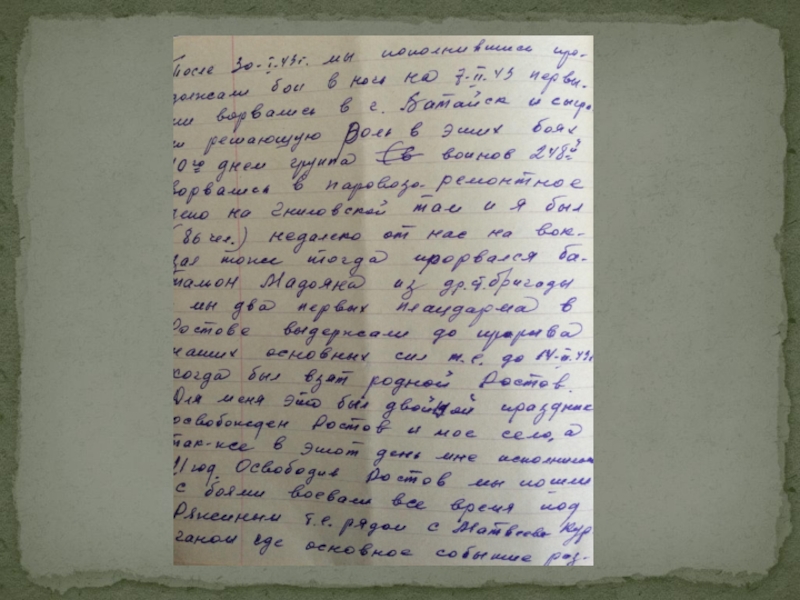 После 30-I-43г. мы пополнившись про-
должали бои в ночь на 7-II-43 первы-
ми ворвались в г. Батайск и сыгра
и решающую роль в этих боях
10го днем группа воинов 248й
ворвались в паровозо-ремонтное
на Гниловской там и я был
(86 чел.) недалеко от нас на вок-
зал тоже тогда прорвался ба-
тальон Мадояна из др. т. бригады
мы два первых плацдарма в
Ростове выдержали до прорыва
наших основных сил т.е. до 14-II-43г
когда был взят родной Ростов.
Для меня это был двойной праздник
освобожден Ростов и мое село, а
так-же в этот день мне исполнился
год. Освободив Ростов мы пошли
с боями воевали все время под
Ряженным т.е. рядом с Матвеев Кур
ганом где основное событие раз-